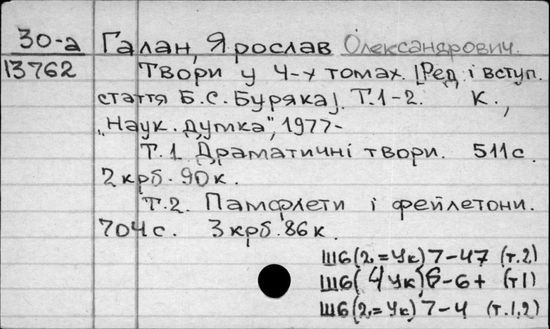 30-а Галан, Ярослав Олександрович.
13762 Твори у 4-х томах. [Ред. і вступ.
стаття Б.С. Буряка]. Т.1-2. К.,
„Наук. думка", 1977-
Т.1. Драматичні твори. 511 с.
2 крб. 90 к.
Т.2. Памфлети і фейлетони.
704 с. 3 крб. 86 к.
Ш6(2=Ук)7-47 (т.2)
Ш6(4Ук)6-6+ (т1)
Ш6(2=Ук)7-4 (т.1,2)